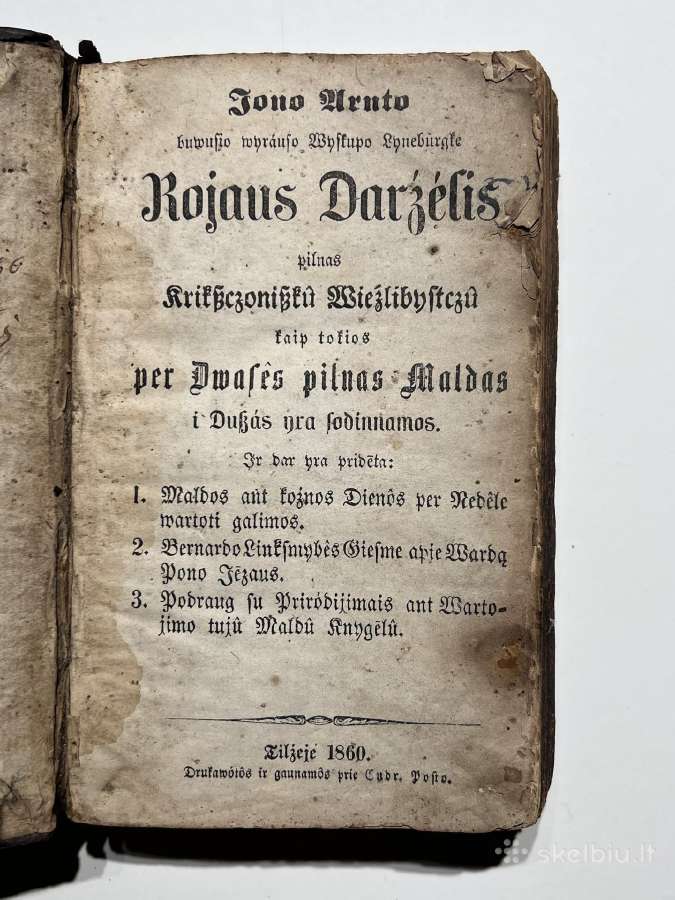 Jono Arnto
buwusio wyráuso Wyskupo Lyneburgke
Rojaus Darźélis
pilnas
Krikßczonißkû Wieźlibystczû
kaip tokios
per Dwasês pilnas Maldas
i Dußás yra sodinnamos.
Ir dar yra pridėta:
1. Maldos ant koźnos Dienôs per Nedėle
wartoti galimos.
2. Bernardo Linksmybês Giesme apie Wardą
Pono Jėzaus.
3. Podraug su Priródijimais ant Warto-
jimo tujû Maldû Knygėlû.
Tilźeje 1860.
Drukawótôs ir gaunamôs prie Endr. Posto.
skelbiu.lt